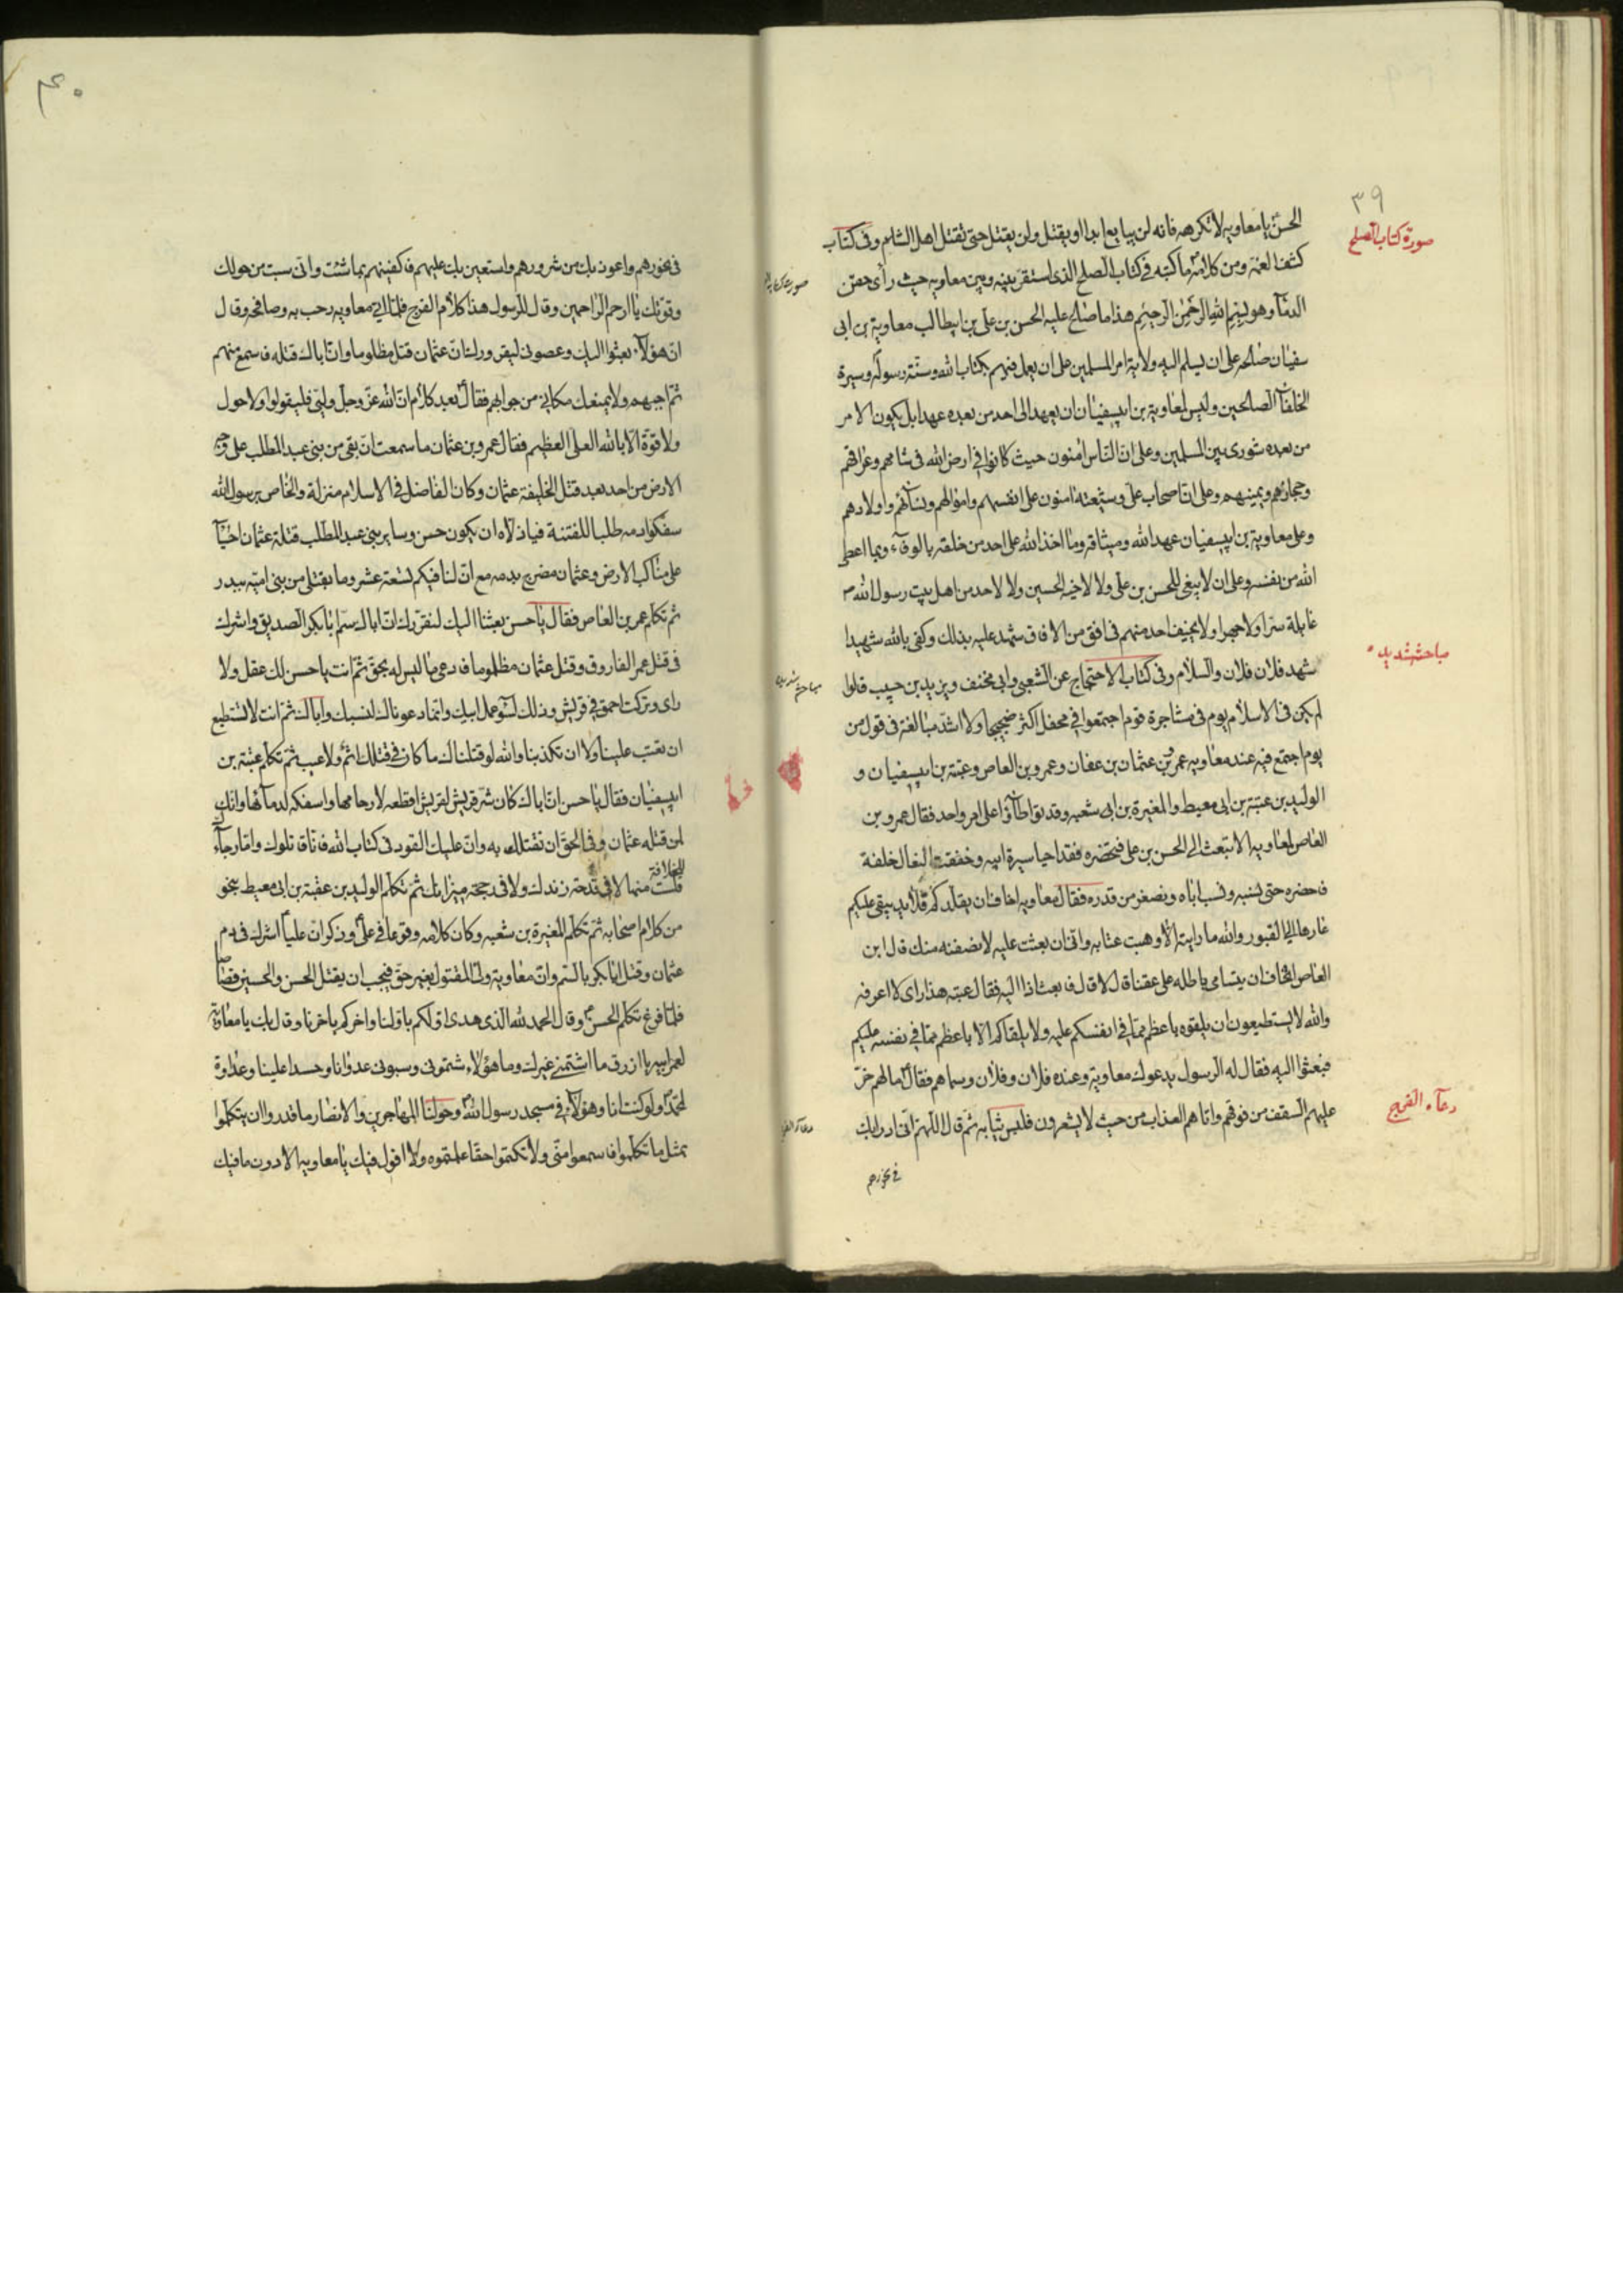 ٣٩
صورة كتاب الصلح
الحسن يا معاويه لا تكرهه فانه لن يبايع ابدا او يقتل ولن يقتل حتى تقتل اهل الشام وفى كتاب
كشف الغمة ومن كلامه ما كتبه فى كتاب الصلح الذى استقر بينه وبين معاويه حيث رأى حقن
الدمآء وهو بسم الله الرحمن الرحيم هذا ما صالح عليه الحسن بن على بن ابيطالب معاوية بن ابى
سفيان صالحه على ان يسلم اليه ولاية امر المسلمين على ان يعمل فيهم بكتاب الله وسنة رسوله وسيرة
الخلفآء الصالحين وليس لمعاوية بن ابيسفيان ان يعهد الى احد من بعده عهدا بل يكون الامر
من بعده شورى بين المسلمين وعلى ان الناس امنون حيث كانوا فى ارض الله فى شامهم وعراقهم
وحجازهم ويمنهم وعلى ان اصحاب على وشيعته امنون على انفسهم واموالهم ونسائهم واولادهم
وعلى معاوية بن ابيسفيان عهد الله وميثاقه وما اخذ الله على احد من خلقه بالوفآء وبما اعطى
الله من نفسه وعلى ان لا يبغى للحسن بن على ولا لاخيه الحسين ولا لاحد من اهل بيت رسول الله ص
غايلة سرا ولا جهرا ولا يخيف احد منهم فى افق من الافاق شهد عليه بذلك وكفى بالله شهيدا
مباحثه شديده
شهد فلان فلان والسلام وفى كتاب الاحتجاج عن الشعبى وابى مخنف ويزيد بن حبيب قالوا
لم يكن فى الاسلام يوم فى مشاجرة قوم اجتمعوا فى محفل اكثر ضجيجا ولا اشد مبالغة فى قول من
يوم اجتمع فيه عند معاويه عمرو بن عثمان بن عفان وعمرو بن العاص وعتبة بن ابيسفيان و
الوليد بن عتبة بن ابى معيط والمغيرة بن ابى شعبه وقد تواطأوا على امر واحد فقال عمرو بن
العاص لمعاويه الا تبعث الى الحسن بن على فتحضره فقد احيا سيرة ابيه وخفقت النعال خلفه
فاحضره حتى نسبه ونسب اباه ونصغر من قدره فقال معاويه اخاف ان يقلدكم قلايد يبقى عليكم
عارها الى القبور والله ما رايته الا وهبت عتابه وانى ان بعثت عليه لانصفنه منك قال ابن
العاص اتخاف ان يتسامى باطله على حقنا قال لا قال فابعث اذا اليه فقال عتبه هذا راى لا اعرفه
والله لا يستطيعون ان يلقوه باعظم مما فى انفسكم عليه ولا يلقاكم الا باعظم مما فى نفسه عليكم
فبعثوا اليه فقال له الرسول يدعوك معاوية وعنده فلان وفلان وسماهم فقال ما لهم خر
دعآء الفرج
عليهم السقف من فوقهم واتاهم العذاب من حيث لا يشعرون فلبس ثيابه ثم قال اللهم انى ادرا بك
فى نحورهم
٤٠
فى نحورهم واعوذ بك من شرورهم واستعين بك عليهم فاكفينهم بما شئت وانى شئت من حولك
وقوتك يا ارحم الراحمين وقال للرسول هذا كلام الفرج فلما اتى معاويه رحب به وصافحه وقال
ان هؤلآء بعثوا اليك وعصونى ليقرروك ان عثمان قتل مظلوما وان اباك قتله فاسمع منهم
ثم اجبهم ولا يمنعك مكانى من جوابهم فقال بعد كلام ان الله عز وجل وليى فليقولوا ولا حول
ولا قوة الا بالله العلى العظيم فقال عمرو بن عثمان ما سمعت ان بقى من بنى عبد المطلب على وجه
الارض من احد بعد قتل الخليفة عثمان وكان الفاضل فى الاسلام منزلة والخاص برسول الله
سفكوا دمه طلبا للفتنة فياذلاه ان يكون حسن وساير بنى عبد المطلب قتلة عثمان احيآء
على مناكب الارض وعثمان مضرج بدمه مع ان لنا فيكم تسعة عشر وما بقتلى من بنى اميه ببدر
ثم تكلم عمر بن العاص فقال يا حسن بعثنا اليك لنقررك ان اباك سم ابا بكر الصديق واشرك
فى قتل عمر الفاروق وقتل عثمان مظلوما فادعى ما ليس له بحق ثم انت يا حسن لك عقل ولا
راى وتركت احمق فى قريش وذلك لسوء عمل ابيك وانما دعوناك لنسبك واباك ثم انت لا تستطيع
ان تعتب علينا ولا ان تكذبنا والله لو قتلناك ما كان فى قتلك اثم ولا عيب ثم تكلم عتبة بن
ابيسفيان فقال يا حسن ان اباك كان شر قريش لقريش اقطعه لارحامها واسفكه لدمائها وانك
لمن قتله عثمان وفى الحق ان نقتلك به وان عليك القود فى كتاب الله فانا قاتلوك واما رجآءك
للخلافة
فلست منها لا فى قدحة زندك ولا فى رجحة ميزانك ثم تكلم الوليد بن عقبة بن ابى معيط بنحو
من كلام اصحابه ثم تكلم المغيرة بن شعبه وكان كلامه وقوعا فى على وذكر ان عليا اشرك فى دم
عثمان وقتل ابا بكر بالسم وان معاوية ولى المقتول بغير حق فيجب ان يقتل الحسن والحسين قصاصا
فلما فرغ تكلم الحسن وقال الحمد لله الذى هدى اولكم باولنا واخركم باخرنا وقال بك يا معاوية
لعمر ابيه يا ازرق ما اشتمنى غيرك وما هؤلاء شتمونى وسبونى عدوانا وحسدا علينا وعداوة
لمحمد ولو كنت انا وهؤلآء فى مسجد رسول الله وحولنا المهاجرين والانصار ما قدروا ان يتكلموا
بمثل ما تكلموا فاسمعوا منى ولا تكتموا حقا علمتموه ولا اقول فيك يا معاويه الا دون ما فيك